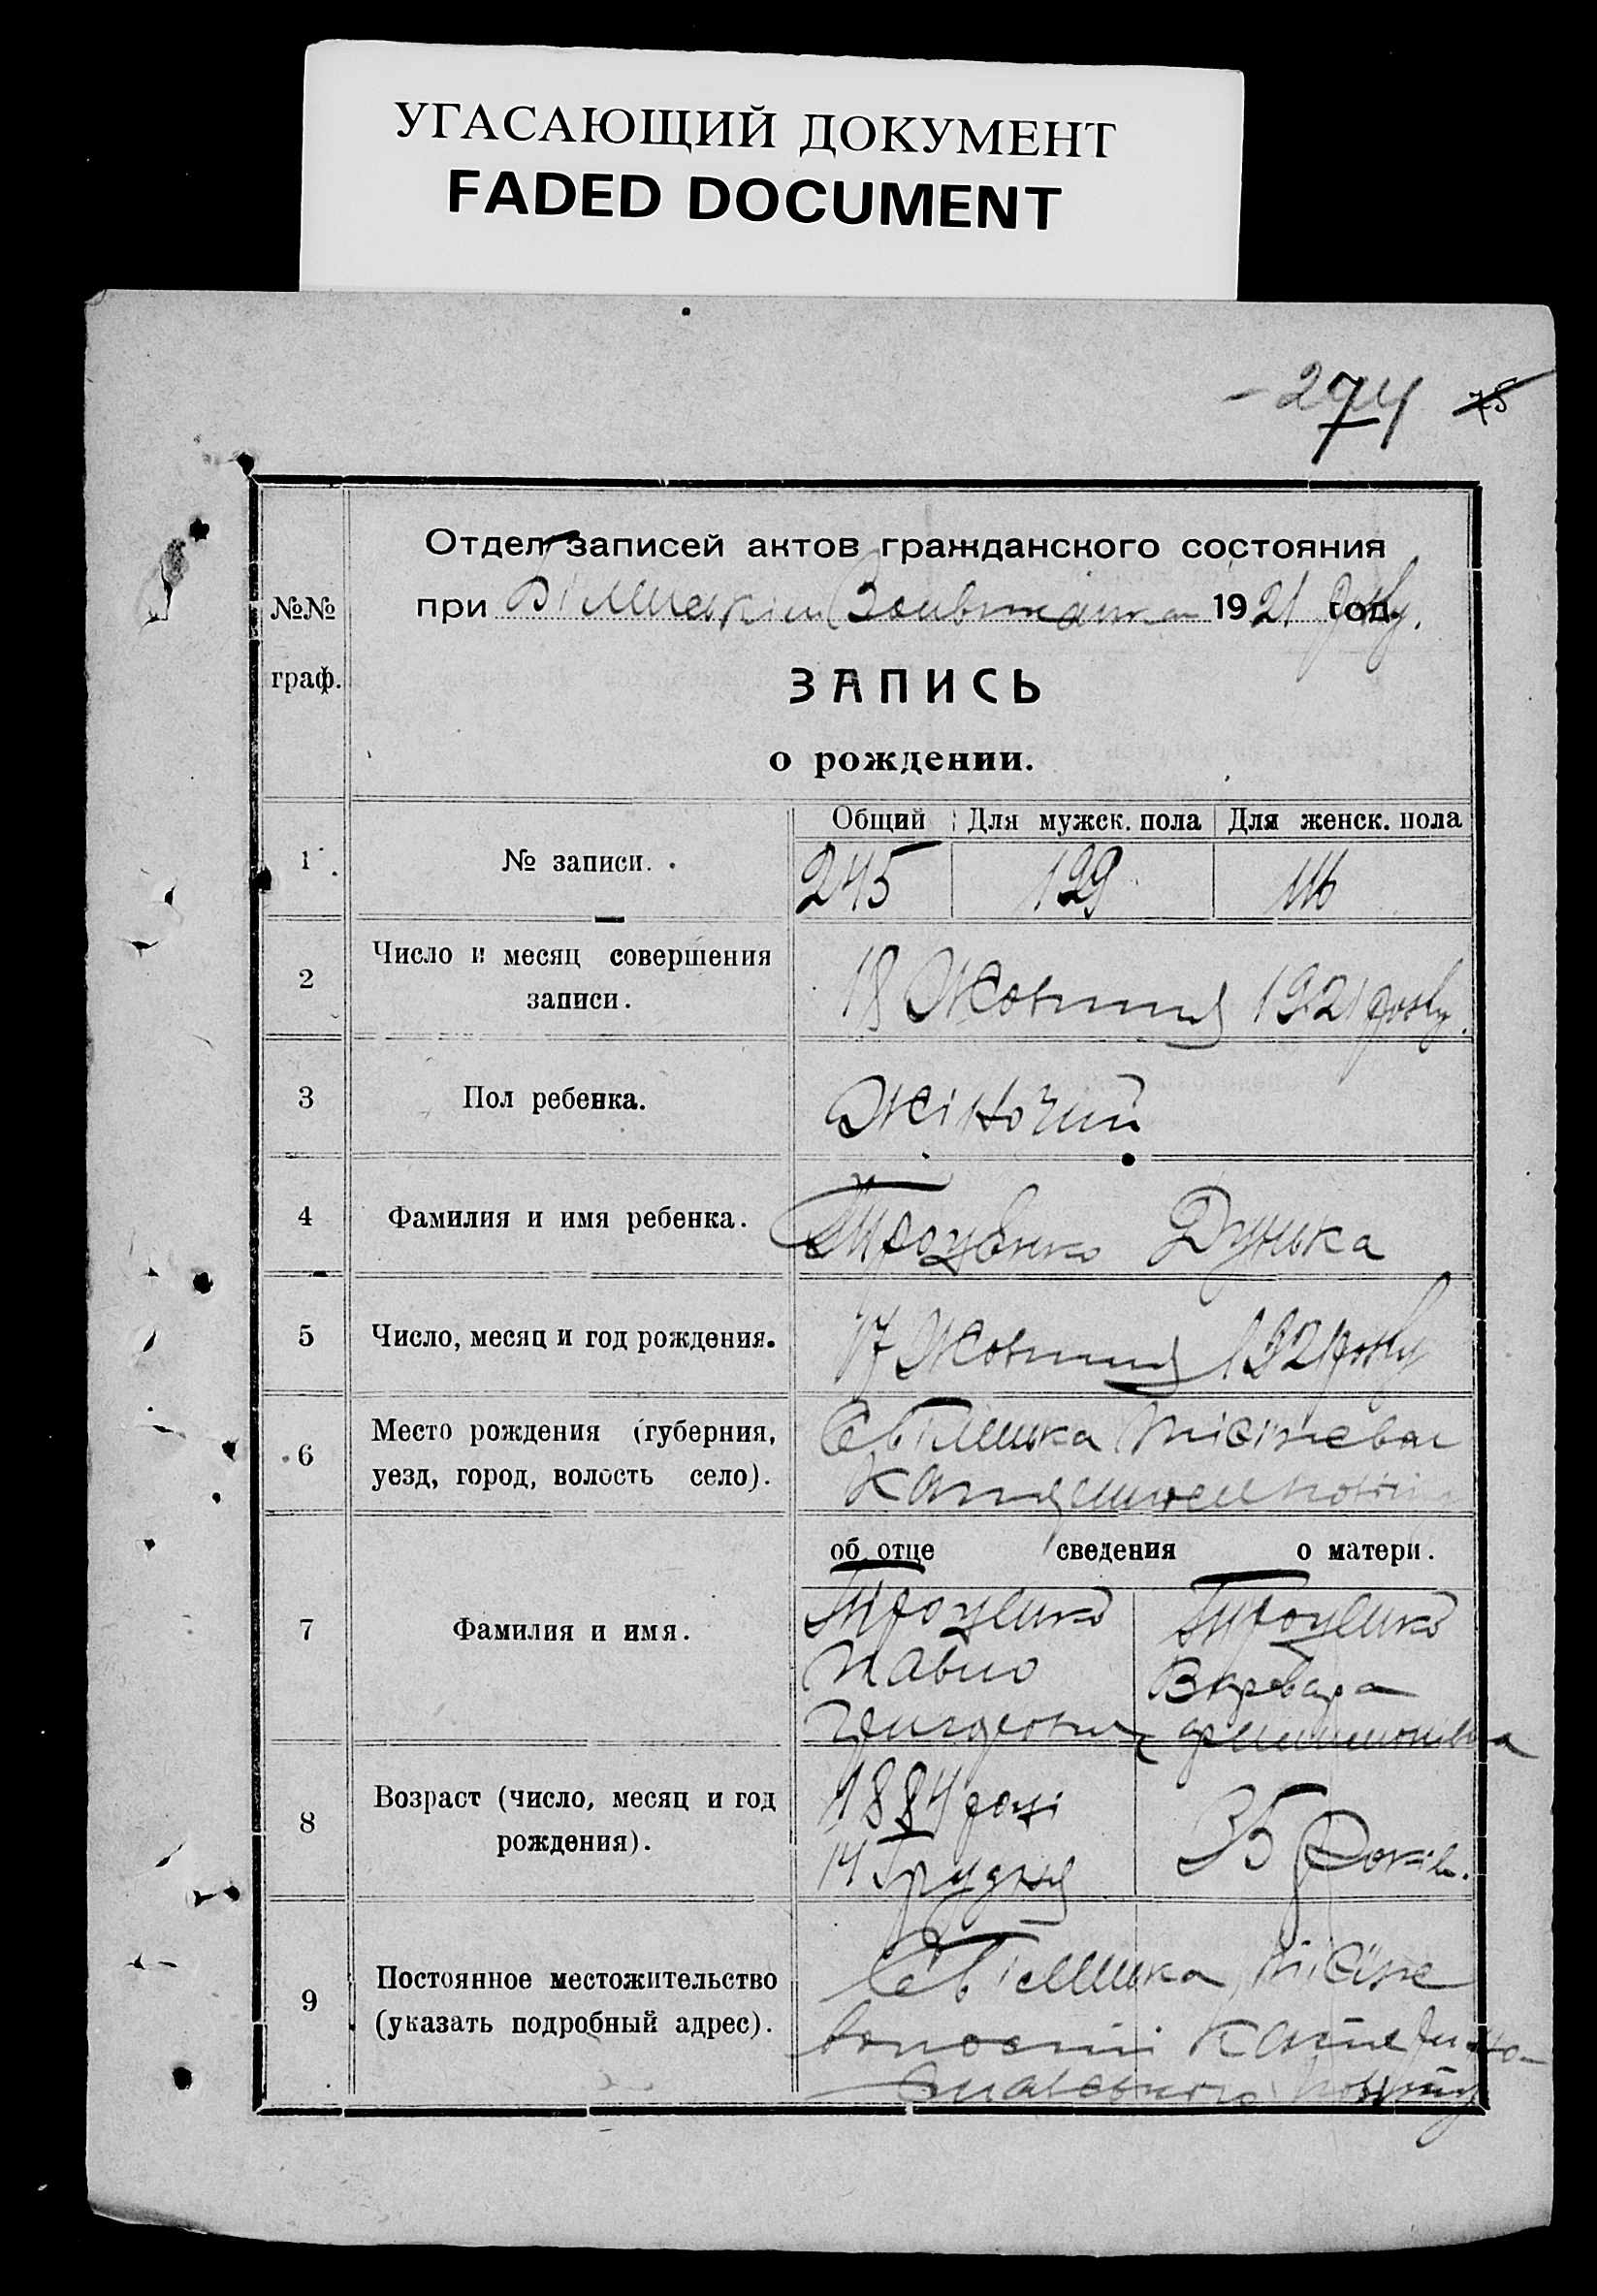 УГАСАЮЩИЙ ДОКУМЕНТ
FADED DOCUMENT
274 75
№№ граф.
Отдел записей актов гражданского состояния
при 1921 году.
ЗАПИСЬ
о рождении.
Общий Для мужск. пола Для женск. пола
1 № записи. 245 129 116
2 Число и месяц совершения
записи.
18 Жовтня 1921 року.
3 Пол ребенка. Жіночий
4 Фамилия и имя ребенка. Троценко Дунька
5 Число, месяц и год рождения. 17 Жовтня 1921 року
6 Место рождения (губерния,
уезд, город, волость село).
об отце сведения о матери.
7 Фамилия и имя.
Троценко Троценко
Павло Варвара
Григорович
8 Возраст (число, месяц и год
рождения).
1884 році
14 Грудня
35 Років.
9 Постоянное местожительство
(указать подробный адрес).
волости
повіту